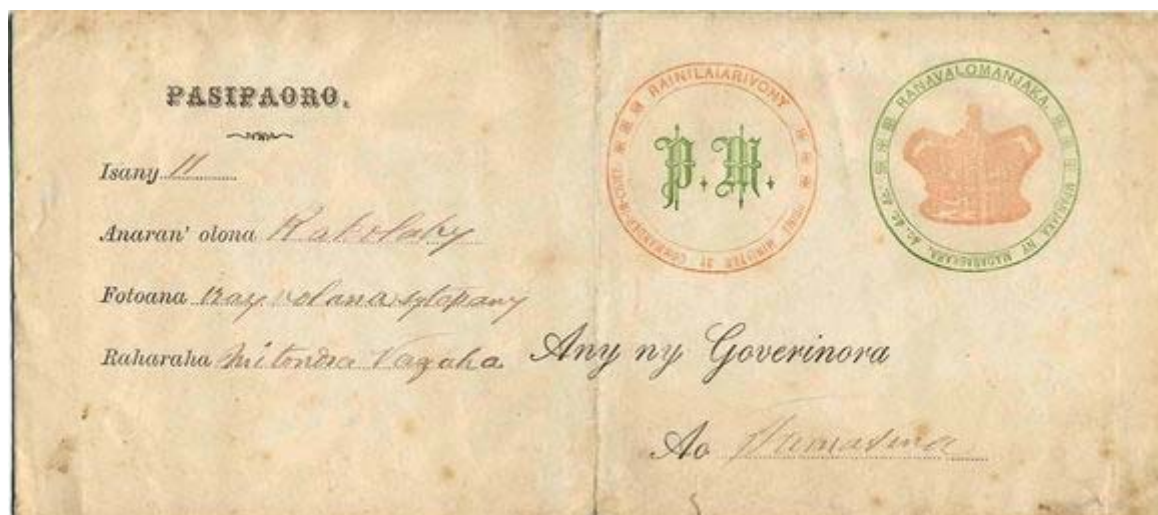 PASIPAORO.
Isany 11
Anaran' olona Rakotolahy
Fotoana iray volana sy tapany
Raharaha Mitondra Vazaha
RAINILAIARIVONY
PRIME MINISTER & COMMANDER-IN-CHIEF
P. M.
RANAVALOMANJAKA.
MPANJAKA NY MADAGASKARA, &c. &c. &c.
Any ny Goverinora
Ao Tamatave